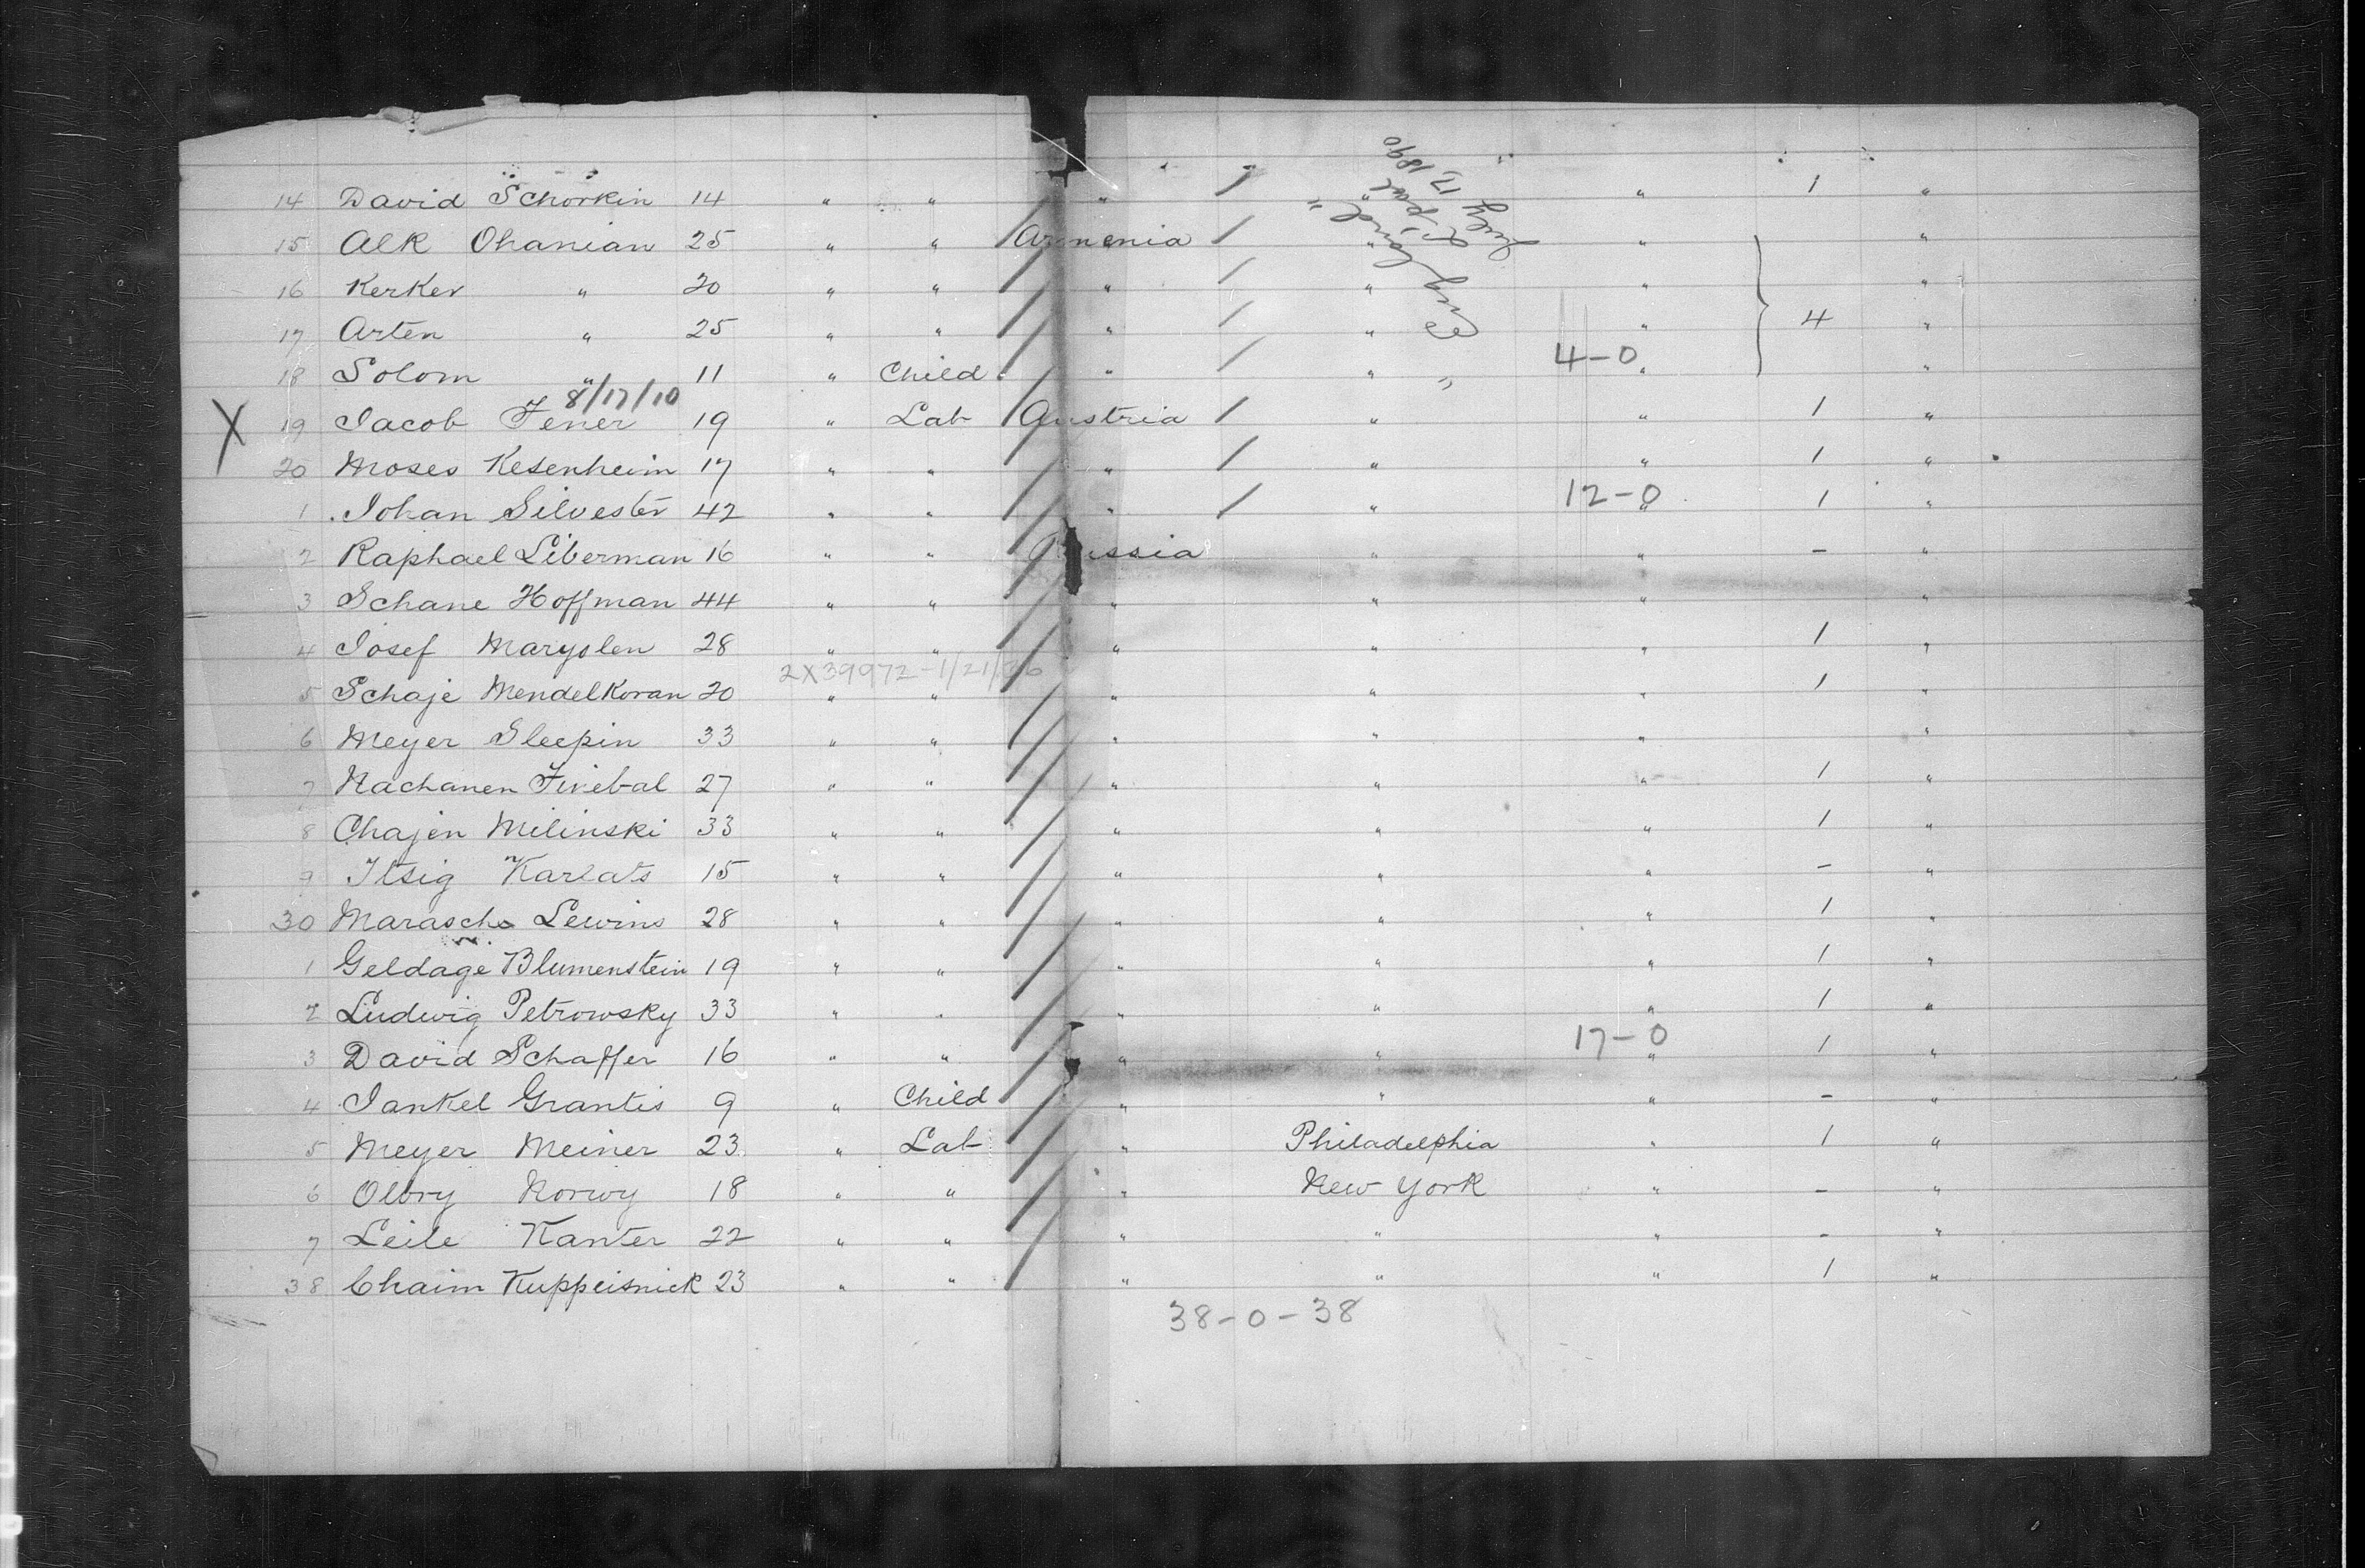 14 David Schorkin 14 " " " / " " 1 "
15 Alk Ohanian 25 " " Armenia / " " "
16 Kerker " 20 " " " / " " "
17 Arten " 25 " " " / " " 4 "
4-0
18 Solom " 11 " Child " / " " "
8/17/10
X 19 Jacob Fener 19 " Lab Austria / " " 1 "
20 Moses Kesenheim 17 " " " / " " 1 "
12-0
1 Johan Silvester 42 " " " / " " 1 "
2 Raphael Liberman 16 " " Russia " " - "
3 Schane Hoffman 44 " " " " " "
4 Josef Maryslen 28 " " " " " 1 "
2X39972-1/21/36
5 Schaje Mendelkoran 20 " " " " " 1 "
6 Meyer Sleepin 33 " " " " " "
7 Nachanen Finebal 27 " " " " " 1 "
8 Chajen Milinski 33 " " " " " 1 "
9 Itsig Karlats 15 " " " " " - "
30 Marasche Lewins 28 " " " " " 1 "
1 Geldage Blumenstein 19 " " " " " 1 "
2 Ludwig Petrowsky 33 " " " " " 1 "
17-0
3 David Schaffer 16 " " " " " 1 "
4 Jankel Grantis 9 " Child " " " - "
5 Meyer Meiner 23 " Lab " Philadelphia " 1 "
6 Olbry Norwy 18 " " " New York " - "
7 Leile Kanter 22 " " " " " - "
38 Chaim Kuppeisnick 23 " " " " " 1 "
38-0-38
July 17, 1890